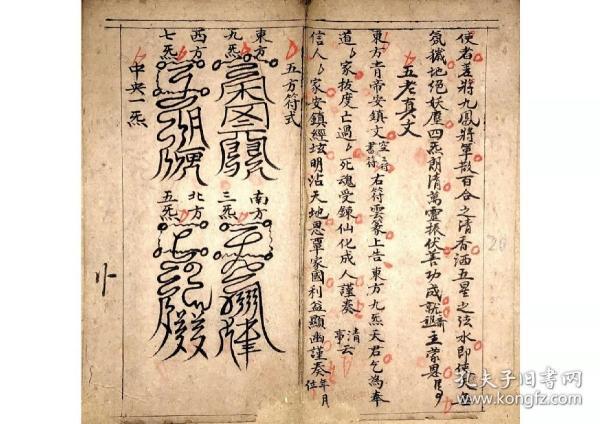 使者差將九鳳將軍散百合之清香洒五星之法水即使天
氛穢地絕妖塵四炁朗清萬靈振伏善功成就齋主蒙恩
五老真文
東方青帝安鎮文 空三符 書符 右符雲篆上告東方九炁天君乞為奉
道家拔度亡過死魂受鍊仙化成人謹奏 請云 亭
信人家安鎮經垓明沾天地恩覃家國利益顯幽謹奏 年月 位
五方符式
東方
九炁
南方
三炁
西方
七炁
北方
五炁
中央一炁
20
孔夫子旧书网
www.kongfz.com